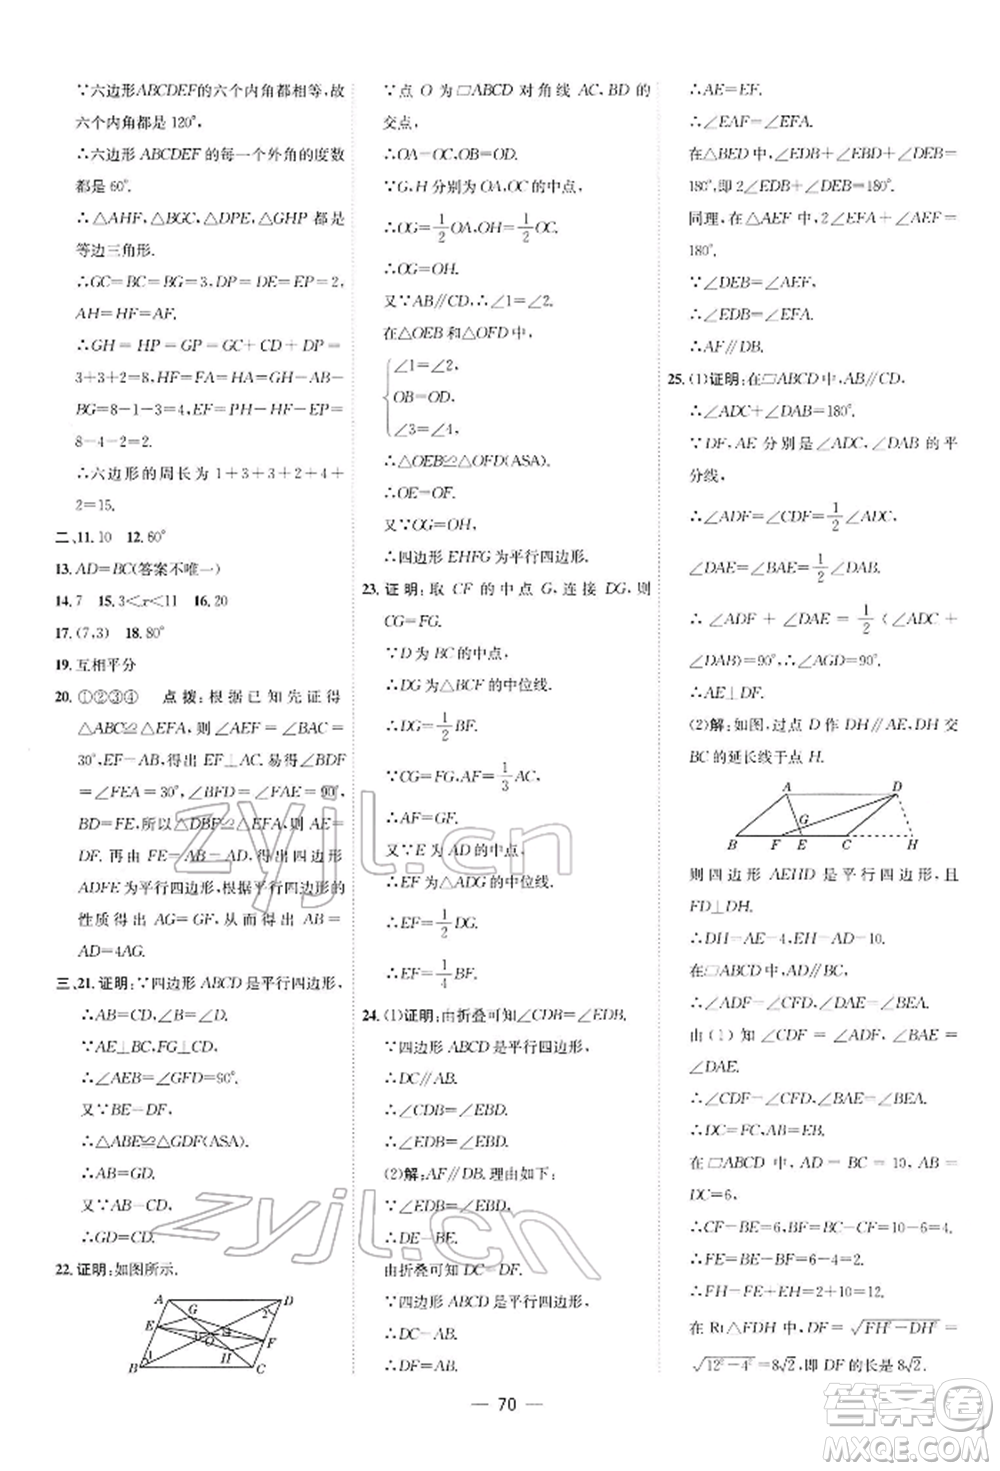 ∵六边形ABCDEF的六个内角都相等,故
六个内角都是120°,
∴六边形ABCDEF的每一个外角的度数
都是60°.
∴△AHF,△BGC,△DPE,△GHP都是
等边三角形.
∴GC=BC=BG=3,DP=DE=EP=2,
AH=HF=AF.
∴GH=HP=GP=GC+CD+DP=
3+3+2=8,HF=FA=HA=GH-AB-
BG=8-1-3=4,EF=PH-HF-EP=
8-4-2=2.
∴六边形的周长为1+3+3+2+4+
2=15.
二、11.10 12.60°
13.AD=BC(答案不唯一)
14.7 15.3<x<11 16.20
17.(7,3) 18.80°
19.互相平分
20.①②③④ 点拨:根据已知先证得
△ABC≌△EFA,则∠AEF=∠BAC=
30°,EF=AB,得出EF⊥AC.易得∠BDF
=∠FEA=30°,∠BFD=∠EAF=90°,
BD=FE,所以△DBF≌△EFA,得出AE=
DF.再由FE=AB=AD得出四边形
ADFE为平行四边形,根据平行四边形的
性质得出AG=GF,从而得出AB=
AD=4AG.
三、21.证明:∵四边形ABCD是平行四边形,
∴AB=CD,∠B=∠D.
∵AE⊥BC,FG⊥CD,
∴∠AEB=∠GFD=90°.
又∵BE=DF,
∴△ABE≌△GDF(ASA).
∴AB=GD.
又∵AB=CD,
∴GD=CD.
22.证明:如图所示.
A G D
E 2
3 O 4
F
1 H
B C
∵点O为□ABCD对角线AC,BD的
交点,
∴OA=OC,OB=OD.
∵G,H分别为OA,OC的中点,
∴OG=1/2OA,OH=1/2OC.
∴OG=OH.
又∵AB∥CD,∴∠1=∠2.
在△OEB和△OFD中,
∠1=∠2,
OB=OD,
∠3=∠4,
∴△OEB≌△OFD(ASA).
∴OE=OF.
又∵OG=OH,
∴四边形EHFG为平行四边形.
23.证明:取CF的中点G,连接DG,则
CG=FG.
∵D为BC的中点,
∴DG为△BCF的中位线.
∴DG=1/2BF.
∵CG=FG,AF=1/3AC,
∴AF=GF.
又∵E为AD的中点,
∴EF为△ADG的中位线.
∴EF=1/2DG.
∴EF=1/4BF.
24.(1)证明:由折叠可知∠CDB=∠EDB.
∵四边形ABCD是平行四边形,
∴DC∥AB.
∴∠CDB=∠EBD.
∴∠EDB=∠EBD.
(2)解:AF∥DB.理由如下:
∵∠EDB=∠EBD,
∴DE=BE.
由折叠可知DC=DF.
∵四边形ABCD是平行四边形,
∴DC=AB.
∴DF=AB.
∴AE=EF.
∴∠EAF=∠EFA.
在△BED中,∠EDB+∠EBD+∠DEB=
180°,即2∠EDB+∠DEB=180°.
同理,在△AEF中,2∠EFA+∠AEF=
180°.
∵∠DEB=∠AEF,
∴∠EDB=∠EFA.
∴AF∥DB.
25.(1)证明:在□ABCD中,AB∥CD,
∴∠ADC+∠DAB=180°.
∵DF,AE分别是∠ADC,∠DAB的平
分线,
∴∠ADF=∠CDF=1/2∠ADC,
∠DAE=∠BAE=1/2∠DAB.
∴∠ADF+∠DAE=1/2(∠ADC+
∠DAB)=90°,∴∠AGD=90°.
∴AE⊥DF.
(2)解:如图,过点D作DH∥AE,DH交
BC的延长线于点H.
A D
G
B F E C H
则四边形AEHD是平行四边形,且
FD⊥DH.
∴DH=AE=4,EH=AD=10.
在□ABCD中,AD∥BC,
∴∠ADF=∠CFD,∠DAE=∠BEA.
由(1)知∠CDF=∠ADF,∠DAE=
∠BAE.
∴∠CDF=∠CFD,∠BAE=∠BEA.
∴DC=FC,AB=EB.
在□ABCD中,AD=BC=10,AB=
DC=6,
∴CF=BE=6,BF=BC-CF=10-6=4.
∴FE=BE-BF=6-4=2.
∴FH=FE+EH=2+10=12.
在Rt△FDH中,DF=√(FH²-DH²)=
√(12²-4²)=8√2,即DF的长是8√2.
— 70 —
zyjl.cn
zyjl.cn
答案圈
MXQE.COM